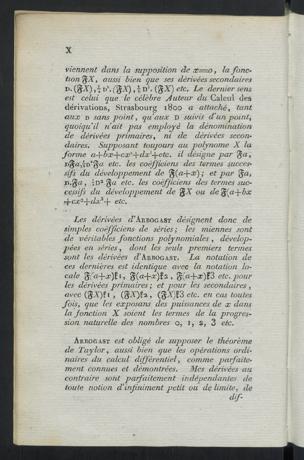 X
viennent dans la supposition de x=0, la fonc-
tion 𝔉X, aussi bien que ses dérivées secondaires
D.(𝔉X), ½D².(𝔉X), ⅓D³.(𝔉X) etc. Le dernier sens
est celui que le célèbre Auteur du Calcul des
dérivations, Strasbourg 1800 a attaché, tant
aux D sans point, qu'aux D suivis d'un point,
quoiqu'il n'ait pas employé la dénomination
de dérivées primaires, ni de dérivées secon-
daires. Supposant toujours au polynome X la
forme a+bx+cx²+dx³+etc. il désigne par 𝔉a,
les coëfficiens des termes succes-
sifs du développement de 𝔉(a+x); et par 𝔉a,
D.𝔉a, etc. les coëfficiens des termes suc-
cessifs du développement de 𝔉X ou de 𝔉(a+bx
+cx²+dx³+ etc.
Les dérivées d'ARBOGAST désignent donc de
simples coëfficiens de séries; les miennes sont
de véritables fonctions polynomiales, dévelop-
pées en séries, dont les seuls premiers termes
sont les dérivées d'ARBOGAST. La notation de
ces dernières est identique avec la notation lo-
cale 𝔉(a+x)𝔨1, 𝔉(a+x)𝔨2, 𝔉(a+x)𝔨3 etc. pour
les dérivées primaires; et pour les secondaires,
avec (𝔉X)𝔨1, (𝔉X)𝔨2, (𝔉X)𝔨3 etc. en cas toutes
fois, que les exposans des puissances de x dans
la fonction X soient les termes de la progres-
sion naturelle des nombres 0, 1, 2, 3 etc.
ARBOGAST est obligé de supposer le théorème
de Taylor, aussi bien que les opérations ordi-
naires du calcul différentiel, comme parfaite-
ment connues et démontrées. Mes dérivées au
contraire sont parfaitement indépendantes de
toute notion d'infiniment petit ou de limite, de
dif-